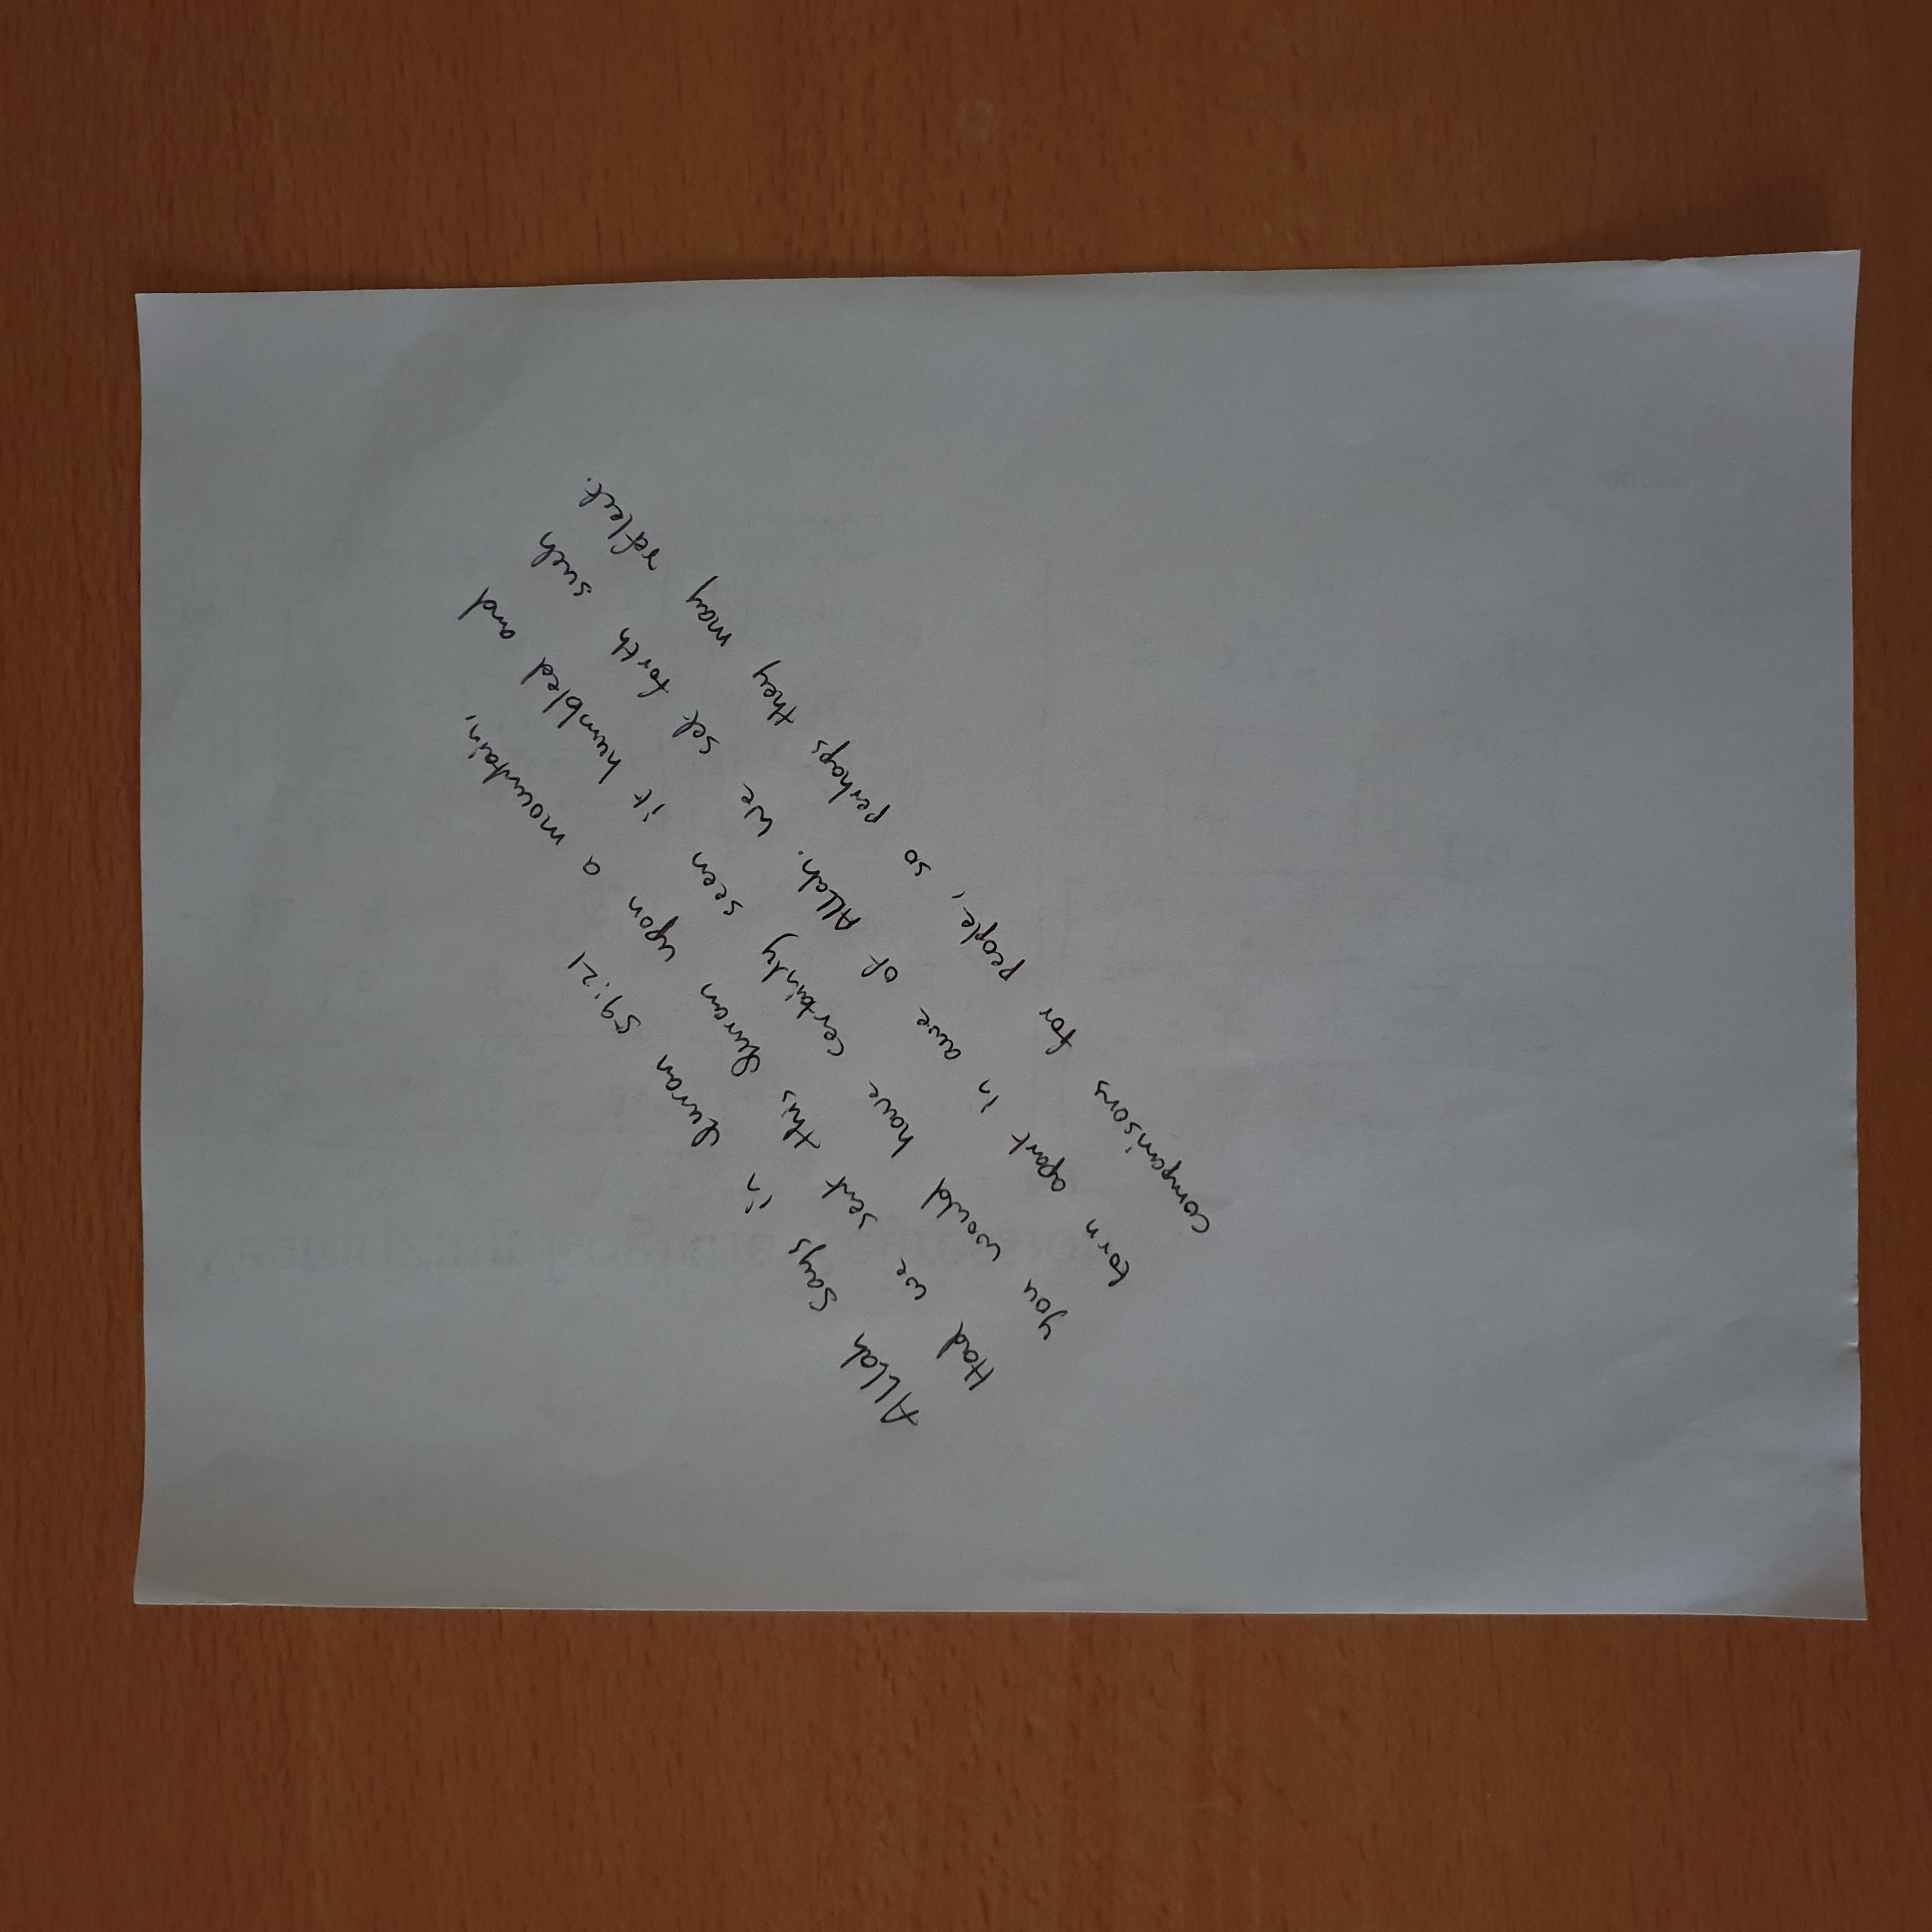 Allah says in Quran 59:21
Had we sent this Quran upon a mountain,
You would have certainly seen it humbled and
torn apart in awe of Allah. We set forth such
comparisons for people, so perhaps they may reflect.